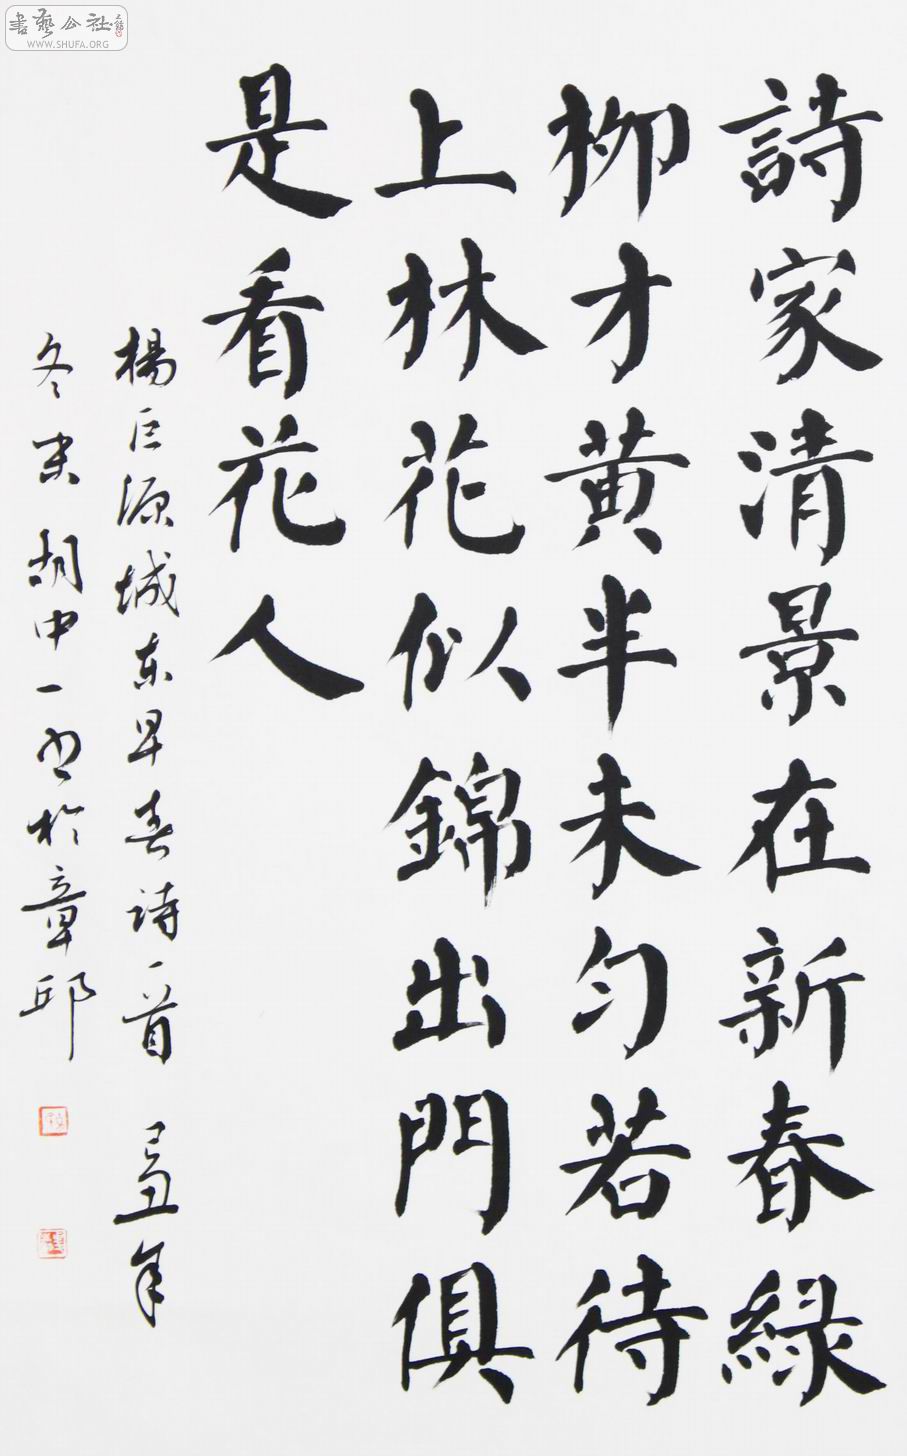 詩家清景在新春緑
柳才黄半未匀若待
上林花似錦出門俱
是看花人
楊巨源城东早春詩一首 己丑年
冬末 胡中一书於章邱
書藝公社
WWW.SHUFA.ORG